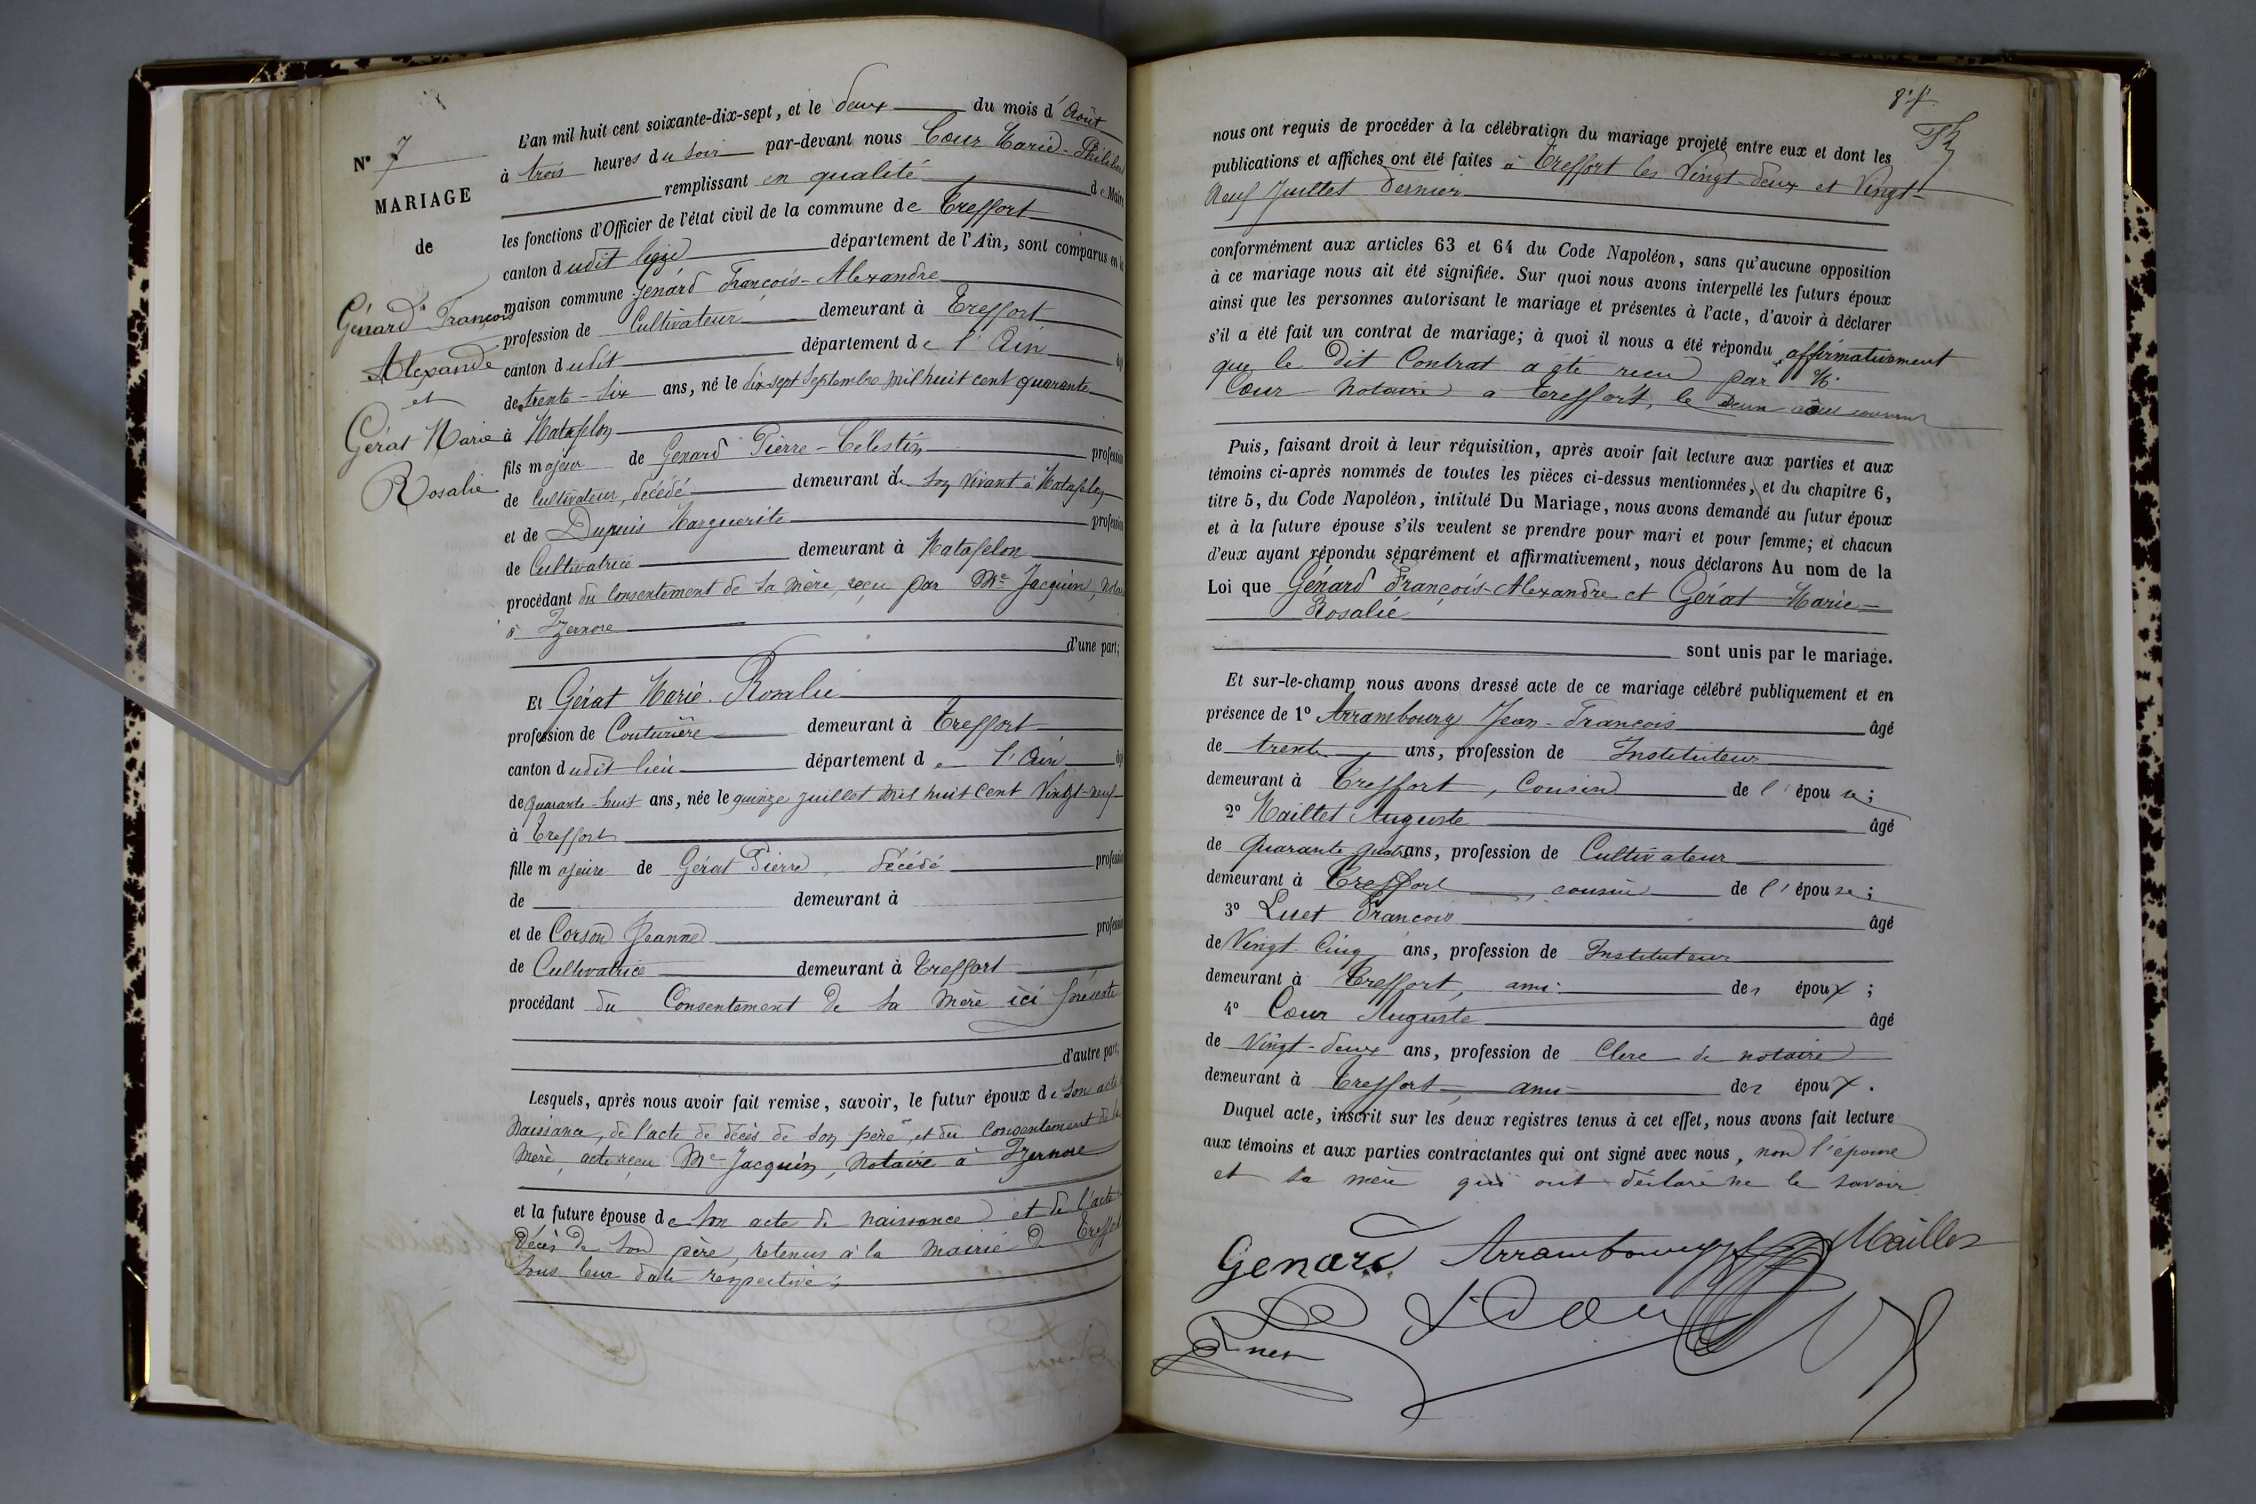 N° 7
MARIAGE
de
Génard François
Alexandre
et
Gérat Marie
Rosalie
L'an mil huit cent soixante-dix-sept, et le deux du mois d'Août
à trois heures du soir par-devant nous Cœur Marie-Philibert
remplissant en qualité de Maire
les fonctions d'Officier de l'état civil de la commune de Treffort
canton dudit lieu département de l'Ain, sont comparus en la
maison commune Génard François-Alexandre
profession de Cultivateur demeurant à Treffort
canton dudit département de l'Ain
de trente-six ans, né le dix sept Septembre mil huit cent quarante
à Matafelon
fils majeur de Génard Pierre-Célestin profession
de Cultivateur, décédé demeurant de son vivant à Matafelon
et de Dupuis Marguerite profession
de Cultivatrice demeurant à Matafelon
procédant du consentement de sa mère, reçu par Me Jacquin,
à Izernore
d'une part;
Et Gérat Marie-Rosalie
profession de Couturière demeurant à Treffort
canton dudit lieu département de l'Ain
de quarante-huit ans, née le quinze juillet mil huit cent Vingt-neuf
à Treffort
fille majeure de Gérat Pierre, décédé profession
de demeurant à
et de Corson Jeanne profession
de Cultivatrice demeurant à Treffort
procédant du Consentement de sa mère ici présente
d'autre part,
Lesquels, après nous avoir fait remise, savoir, le futur époux de son acte
Naissance, de l'acte de décès de son père, et du consentement de sa
mère, acte reçu Me Jacquin, Notaire à Izernore
et la future épouse de son acte de naissance et de l'acte
décès de son père, retenus à la mairie de Treffort
sous leur date respective;
nous ont requis de procéder à la célébration du mariage projeté entre eux et dont les
publications et affiches ont été faites à Treffort les Vingt-deux et Vingt-
Neuf Juillet dernier
conformément aux articles 63 et 64 du Code Napoléon, sans qu'aucune opposition
à ce mariage nous ait été signifiée. Sur quoi nous avons interpellé les futurs époux
ainsi que les personnes autorisant le mariage et présentes à l'acte, d'avoir à déclarer
s'il a été fait un contrat de mariage; à quoi il nous a été répondu affirmativement
que le dit Contrat a été reçu par M.
Cœur Notaire à Treffort, le deux août courant
Puis, faisant droit à leur réquisition, après avoir fait lecture aux parties et aux
témoins ci-après nommés de toutes les pièces ci-dessus mentionnées, et du chapitre 6,
titre 5, du Code Napoléon, intitulé Du Mariage, nous avons demandé au futur époux
et à la future épouse s'ils veulent se prendre pour mari et pour femme; et chacun
d'eux ayant répondu séparément et affirmativement, nous déclarons Au nom de la
Loi que Génard François-Alexandre et Gérat Marie-
Rosalie
sont unis par le mariage.
Et sur-le-champ nous avons dressé acte de ce mariage célébré publiquement et en
présence de 1° Arrambourg Jean-François âgé
de trente ans, profession de Instituteur
demeurant à Treffort, Cousin de l'épouse;
2° Maillet Auguste âgé
de Quarante quatre ans, profession de Cultivateur
demeurant à Treffort, cousin de l'épouse;
3° Luet François âgé
de Vingt Cinq ans, profession de Instituteur
demeurant à Treffort, ami des époux;
4° Cœur Auguste âgé
de Vingt-deux ans, profession de Clerc de notaire
demeurant à Treffort, ami des époux.
Duquel acte, inscrit sur les deux registres tenus à cet effet, nous avons fait lecture
aux témoins et aux parties contractantes qui ont signé avec nous, non l'épouse
et sa mère qui ont déclaré ne le savoir
Genard Arrambourg Maillet